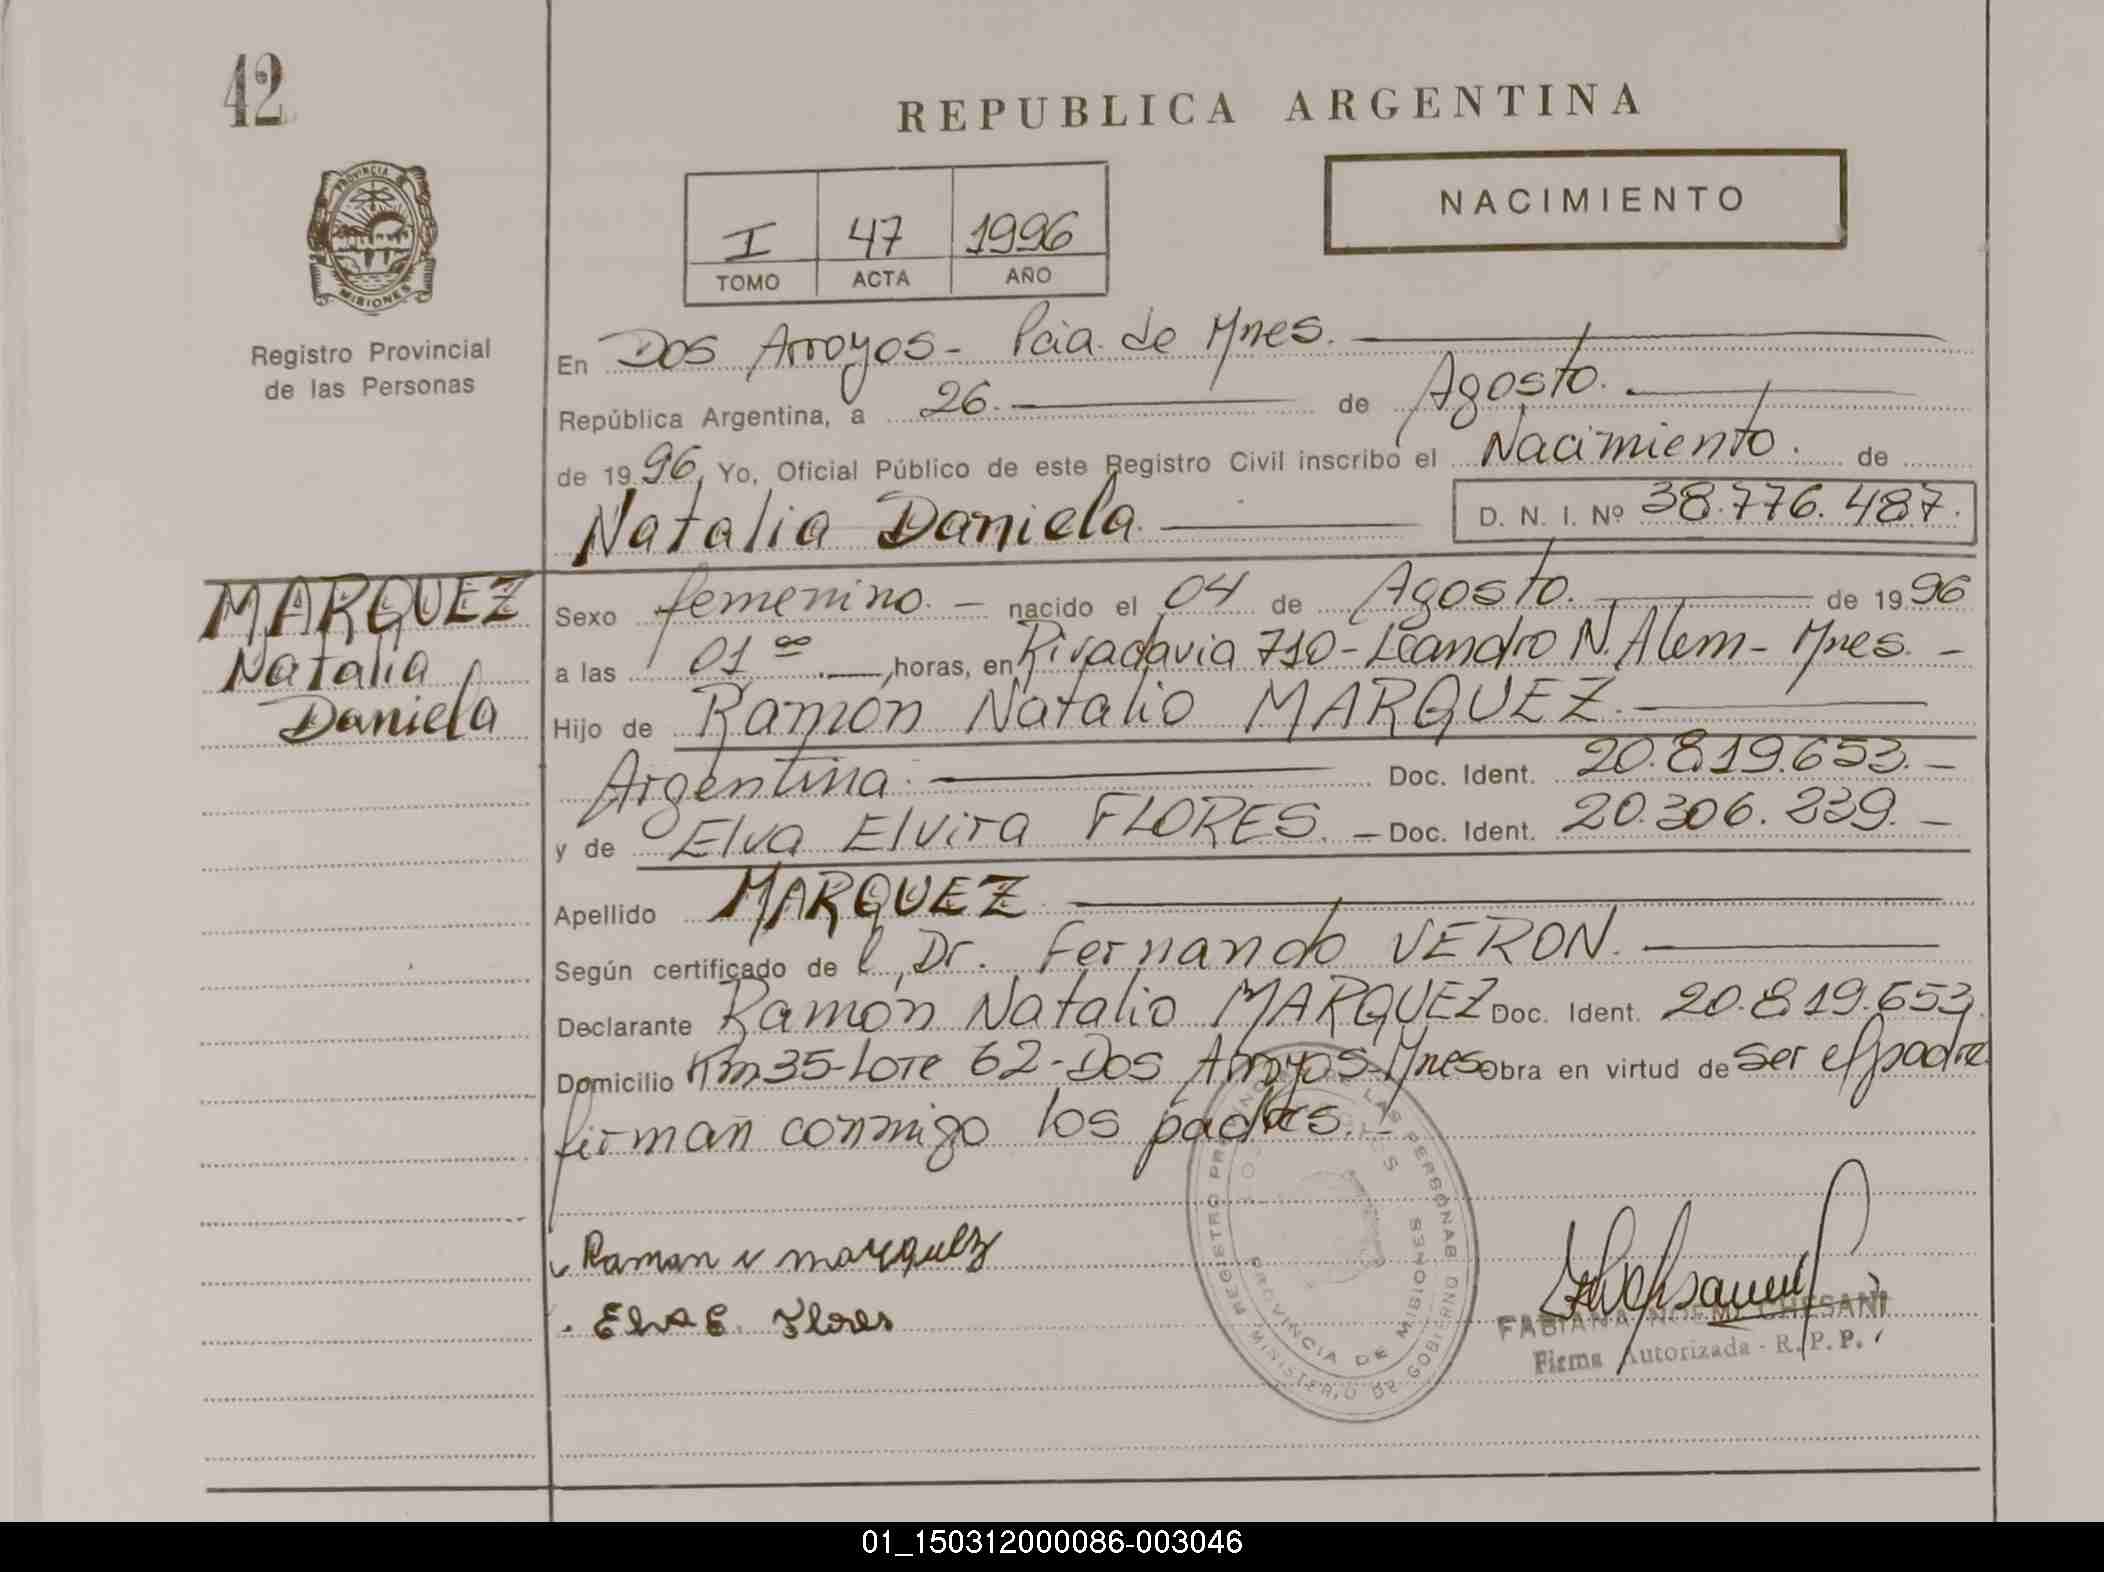 42
REPUBLICA ARGENTINA
NACIMIENTO
I 47 1996
TOMO ACTA AÑO
PROVINCIA DE
MISIONES
Registro Provincial
de las Personas
En Dos Arroyos - Pcia. de Mnes.
República Argentina, a 26. de Agosto.
de 1996, Yo, Oficial Público de este Registro Civil inscribo el Nacimiento. de
Natalia Daniela. D. N. I. Nº 38.776.487.
MARQUEZ
Natalia
Daniela
Sexo femenino. - nacido el 04 de Agosto. de 1996
a las 01 ∞. horas, en Rivadavia 710 - Leandro N. Alem - Mnes. -
Hijo de Ramón Natalio MARQUEZ.
Argentina. Doc. Ident. 20.819.653. -
y de Elva Elvira FLORES. - Doc. Ident. 20.306.239. -
Apellido MARQUEZ
Según certificado de l Dr. Fernando VERON.
Declarante Ramón Natalio MARQUEZ Doc. Ident. 20.819.653.
Domicilio Km 35 - Lote 62 - Dos Arroyos - Mnes Obra en virtud de ser el padre
firman conmigo los padres. -
Raman N marquez
Elva E. Flores
REGISTRO LAS PERSONAS
PROVINCIA DE MISIONES
MINISTERIO DE GOBIERNO
FABIANA NOEMI CHESANI
Firma Autorizada - R. P. P.
01_150312000086-003046